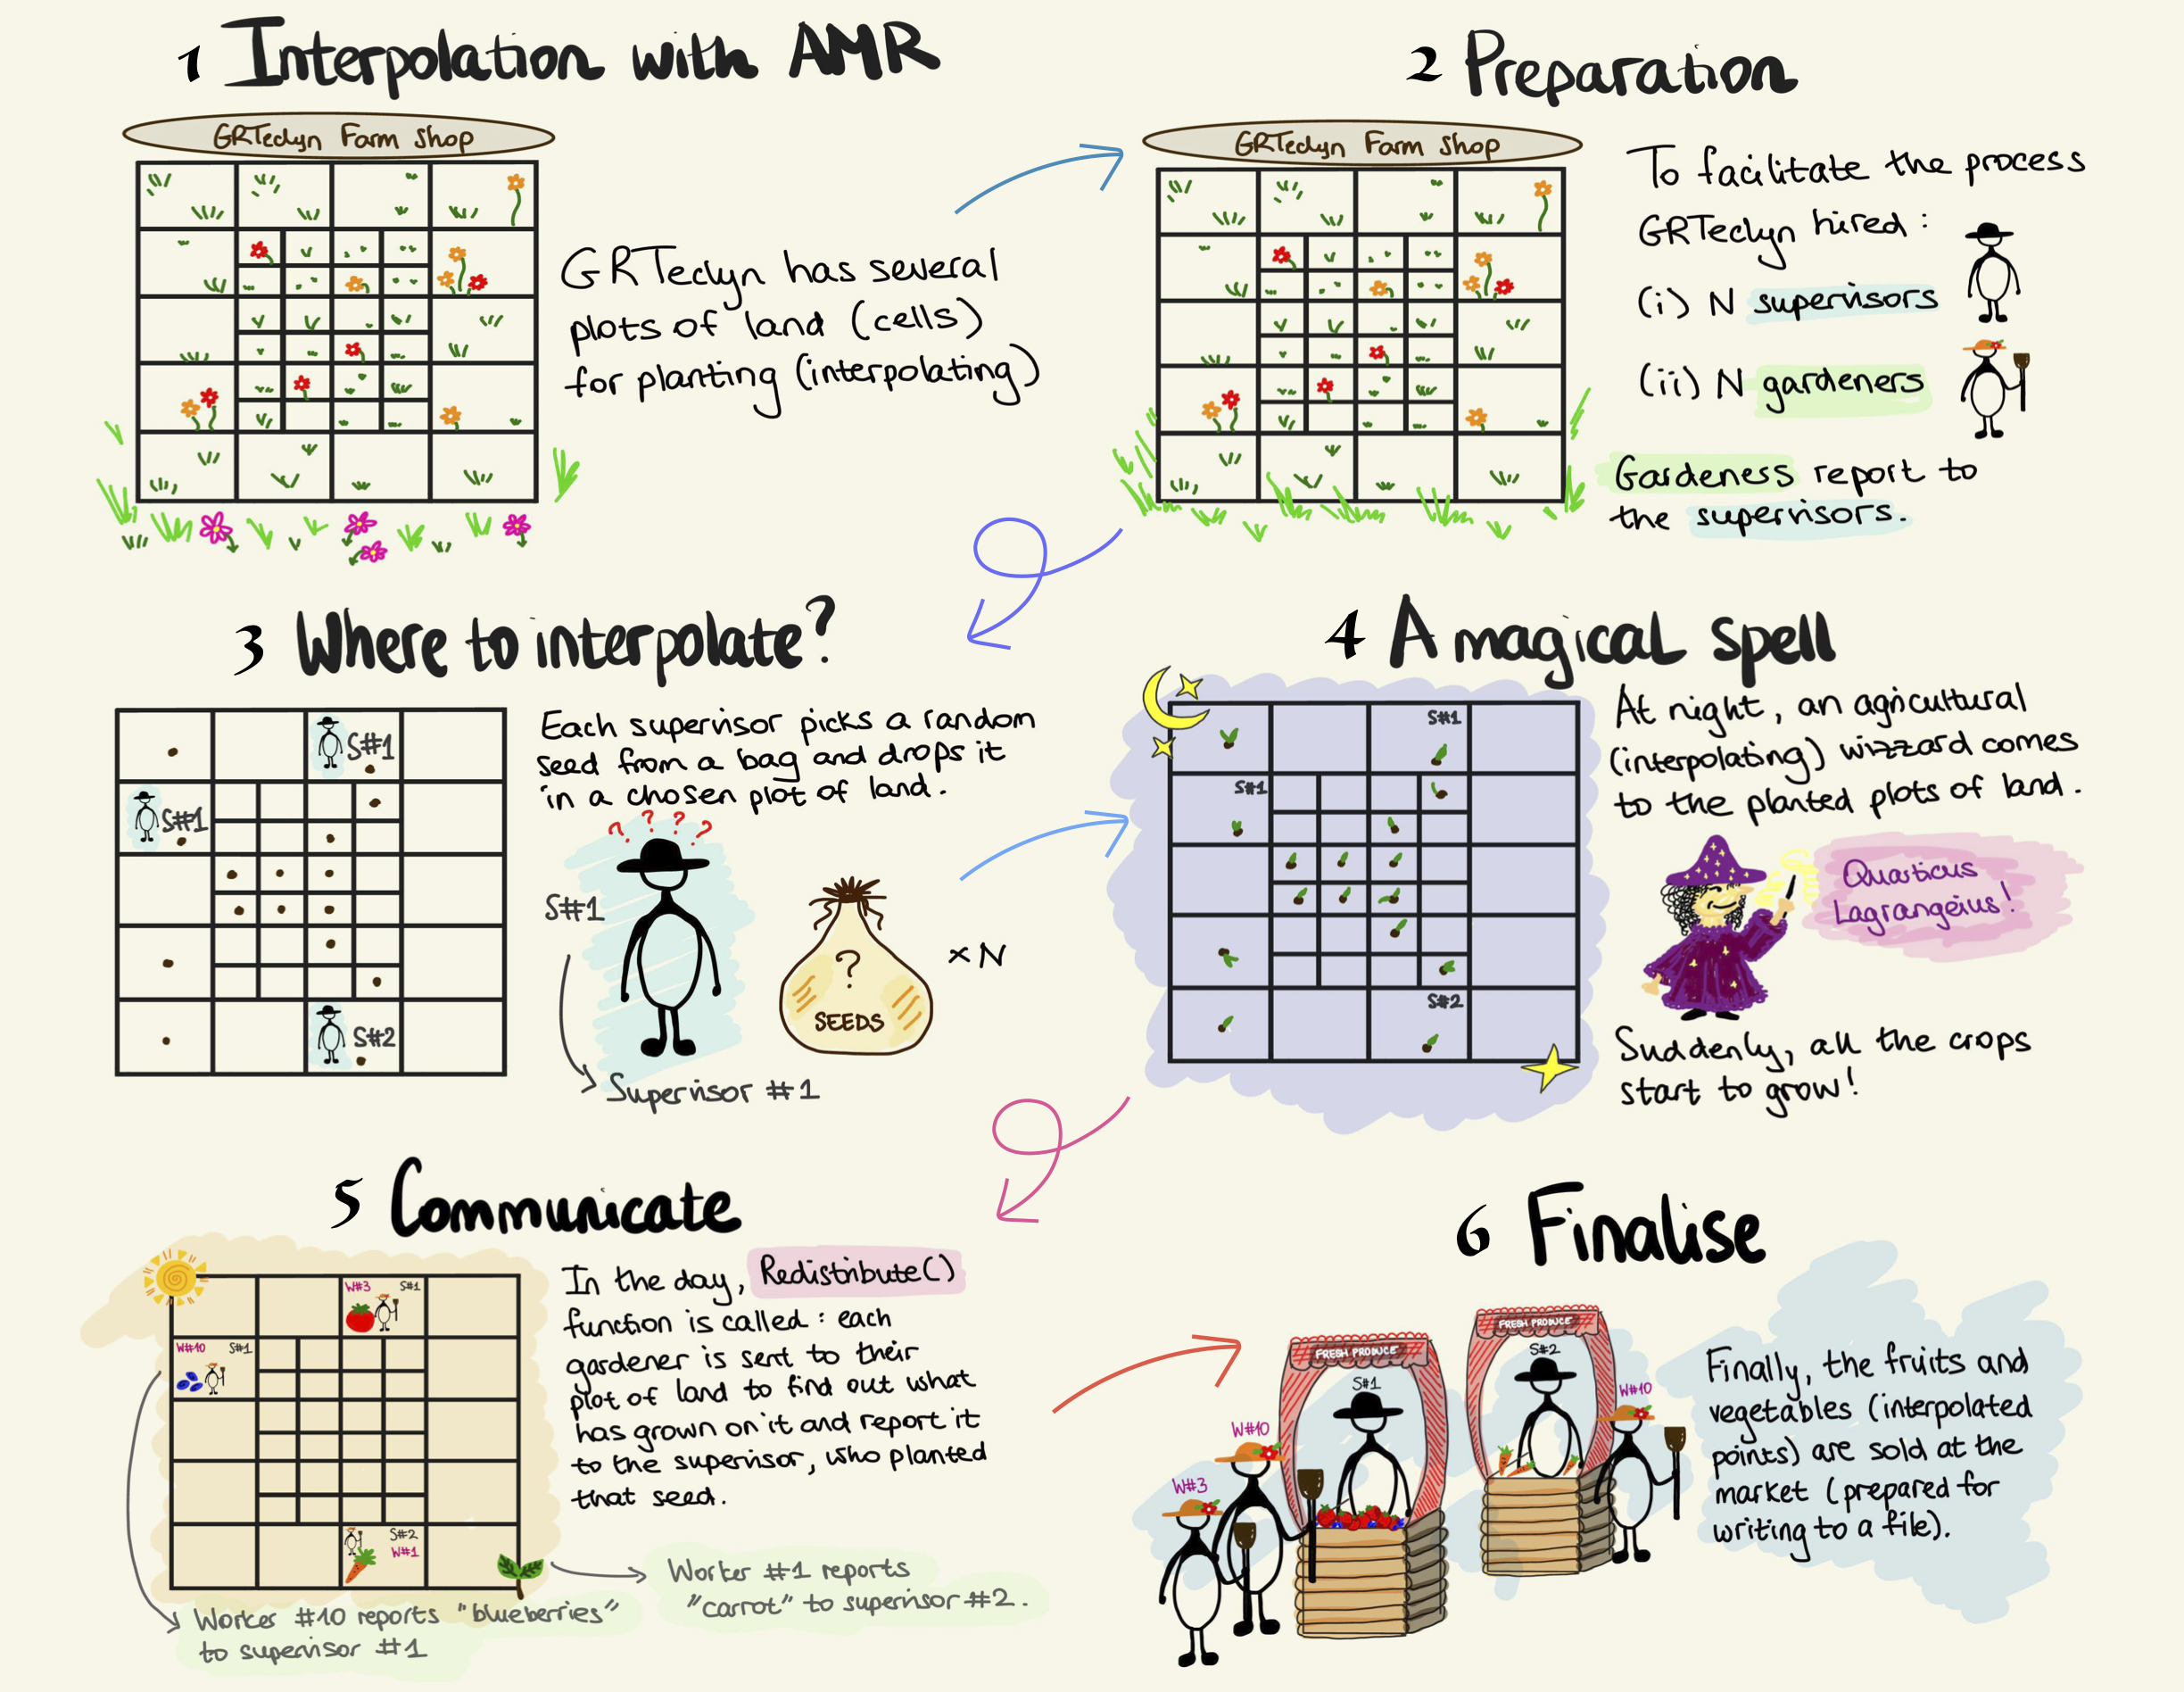 1 Interpolation with AMR
GRTeclyn Farm Shop
GRTeclyn has several
plots of land (cells)
for planting (interpolating)
2 Preparation
GRTeclyn Farm Shop
To facilitate the process
GRTeclyn hired :
(i) N supervisors
(ii) N gardeners
Gardeness report to
the supervisors.
3 Where to interpolate?
S#1
S#1
S#2
Each supervisor picks a random
seed from a bag and drops it
in a chosen plot of land.
? ? ? ?
S#1
?
SEEDS
× N
Supervisor #1
4 A magical spell
S#1
S#1
S#2
At night, an agricultural
(interpolating) wizzard comes
to the planted plots of land.
Quarticus
Lagrangeius!
Suddenly, all the crops
start to grow!
5 Communicate
W#3 S#1
W#10 S#1
S#2
W#1
In the day, Redistribute()
function is called : each
gardener is sent to their
plot of land to find out what
has grown on it and report it
to the supervisor, who planted
that seed.
Worker #1 reports
"carrot" to supervisor #2.
Worker #10 reports "blueberries"
to supervisor #1
6 Finalise
FRESH PRODUCE
S#1
FRESH PRODUCE
S#2
W#10
W#10
W#3
Finally, the fruits and
vegetables (interpolated
points) are sold at the
market (prepared for
writing to a file).